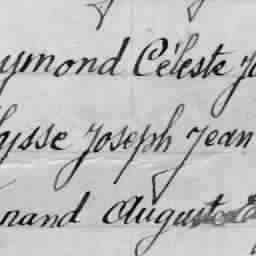 ymond Céleste J
lysse Joseph Jean
nand Auguste